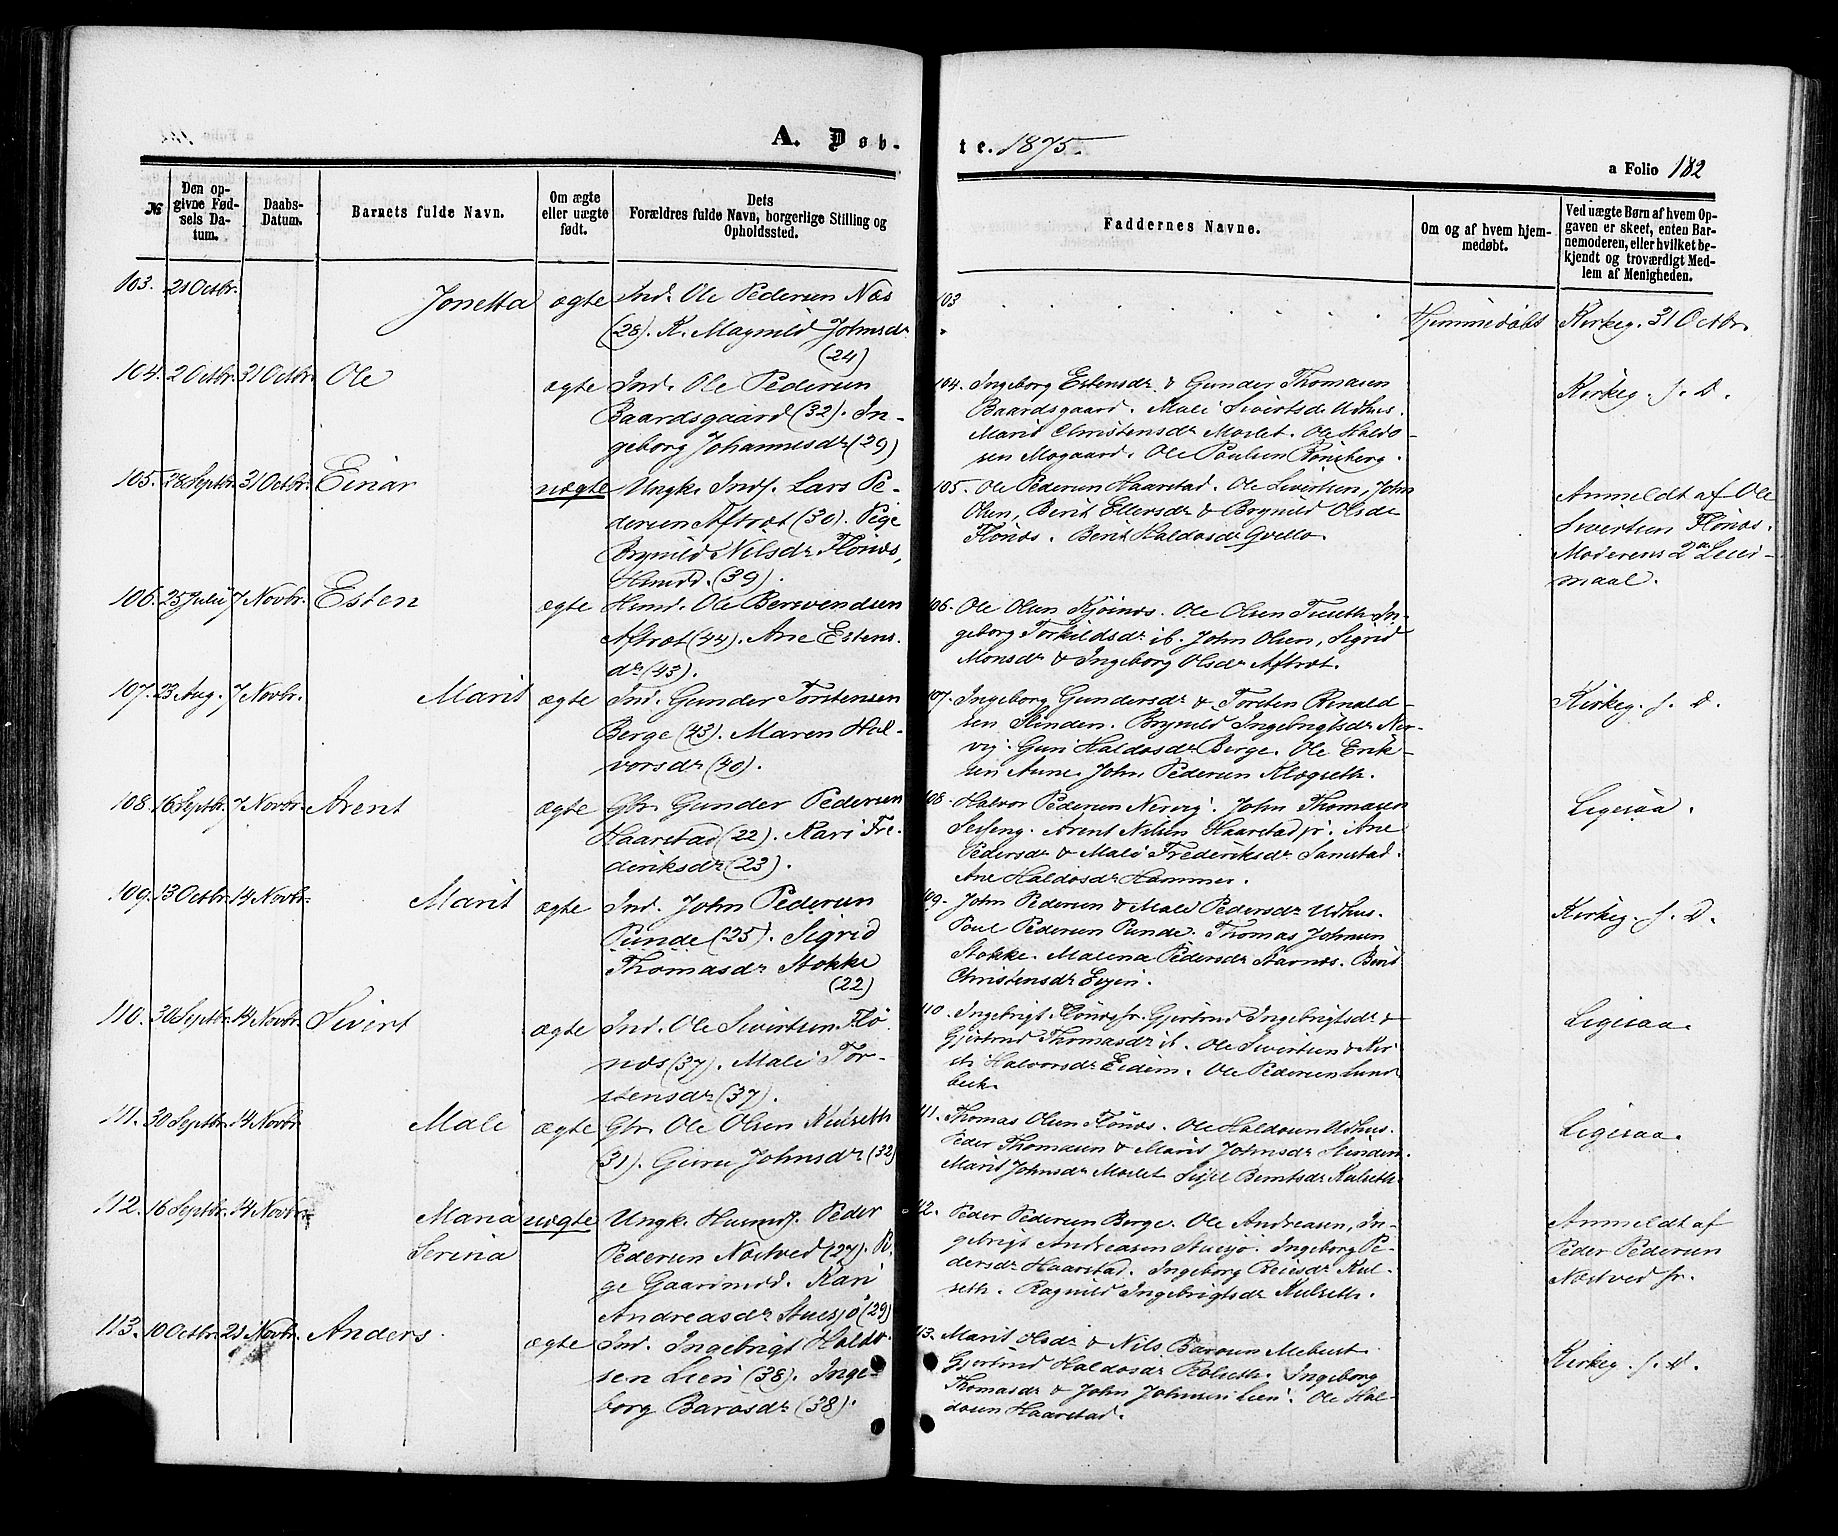 A. Døb-
te. 1875.
a Folio 182
№
Den op-
givne Fød-
sels Da-
tum.
Daabs-
Datum.
Barnets fulde Navn.
Om ægte
eller uægte
født.
Dets
Forældres fulde Navn, borgerlige Stilling og
Opholdssted.
Faddernes Navne.
Om og af hvem hjem-
medøbt.
Ved uægte Børn af hvem Op-
gaven er skeet, enten Bar-
nemoderen, eller hvilket be-
kjendt og troværdigt Med-
lem af Menigheden.
103. 21 Octbr. Jonetta ægte Ind. Ole Pedersen Næs
(28). K. Magnild Johnsdr
(24)
103
Hjemmedøbt
Kirkeg. 31 Octbr.
104. 2 Octbr. 31 Octbr. Ole ægte Ind. Ole Pedersen
Baardsgaard (32). In-
geborg Johannesdr (29)
104. Ingeborg Estensdr & Gunder Thomasen
Baardsgaard. Mali Sivertsdr Udhus.
Marit Christensdr Morlet. Ole Haldo-
sen Mogaard. Ole Paulsen Rønsberg.
Kirkeg. s. D.
105. 28 Septbr. 31 Octbr. Einar uægte Ungk. Inds. Lars Pe-
dersen Aftræt (30). Pige
Brynild Nilsdr Flønæs,
Husmd. (39).
105. Ole Pedersen Haarstad. Ole Sivertsen, John
Olsen, Berit Ellersdr & Brynild Olsdr
Flønæs. Berit Haldosdr Gvello.
Anmeldt af Ole
Sivertsen Flønæs.
Moderens 2det Leier-
maal.
106. 25 Julii 7 Novbr. Esten ægte Husmd. Ole Berendsen
Aftræt (44). Ane Estens-
dr (43).
106. Ole Olsen Kjøinæs. Ole Olsen Tuseth. In-
geborg Torkildsdr ib. John Olsen, Sigrid
Monsdr & Ingeborg Olsdr Aftræt.
107. 23 Aug. 7 Novbr. Marit ægte Ind. Gunder Torstensen
Berge (43). Maren Hal-
vorsdr (40).
107. Ingeborg Gundersdr & Torsten Renald-
sen Stinden. Brynild Ingebrigtsdr Ner-
vig. Guri Haldosdr Berge. Ole Erik-
sen Aune. John Pedersen Klægseth.
Kirkeg. s. D.
108. 16 Septbr. 7 Novbr. Arent ægte Gbr. Gunder Pedersen
Haarstad (22). Kari Fre-
deriksdr (23).
108. Halvor Pedersen Nervig. John Thomasen
Selseng. Arent Nilsen Haarstad jr. Ane
Pedersdr & Mali Frederiksdr Samstad.
Ane Haldosdr Hammer.
Ligesaa.
109. 13 Octbr. 14 Novbr. Marit ægte Ind. John Pedersen
Punde (25). Sigrid
Thomasdr Stokke
(22)
109. John Pedersen & Mali Pedersdr Udhus.
Paul Pedersen Punde. Thomas Johnsen
Stokke. Malena Pedersdr Aarnæs. Berit
Christensdr Evjen.
Kirkeg. s. D.
110. 30 Septbr. 14 Novbr. Sivert ægte Ind. Ole Sivertsen Flø-
næs (37). Mali Tor-
stensdr (37).
110. Ingebrigt Flønæs sr. Gjertrud Ingebrigtsdr &
Gjertrud Thomasdr ib. Ole Sivertsen & Kir-
sti Halvorsdr Eidem. Ole Pedersen Lund-
bech.
Ligesaa.
111. 30 Septbr. 14 Novbr. Male ægte Gbr. Ole Olsen Kulseth
(31). Guru Johnsdr (32)
111. Thomas Olsen Flønæs. Ole Haldosen Udhus.
Peder Thomasen & Marit Johnsdr Stinden.
Marit Johnsdr Morlet. Sissel Berntsdr Kulseth.
Ligesaa.
112. 16 Septbr. 14 Novbr. Maria uægte Ungk. Husmds. Peder
Serina Pedersen Næstved (27). Pi-
ge Gaarmd. Kari
Andreasdr Stuesjø (29)
112. Peder Pedersen Berge. Ole Andreasen, In-
gebrigt Andreasen Stuesjø. Ingeborg Pe-
dersdr Haarstad. Ingeborg Reiersdr Kul-
seth. Ragnild Ingebrigtsdr Kulseth.
Anmeldt af
Peder Pedersen
Næstved sr.
113. 10 Octbr. 21 Novbr. Anders. ægte Ind. Ingebrigt Haldo-
sen Lien (38). Inge-
borg Baroasdr (38).
113. Marit Olsdr & Nils Baroen Mebust.
Gjertrud Haldosdr Rolseth. Ingeborg
Thomasdr & John Johnsen Lien. Ole Hal-
dosen Haarstad.
Kirkeg. s. D.